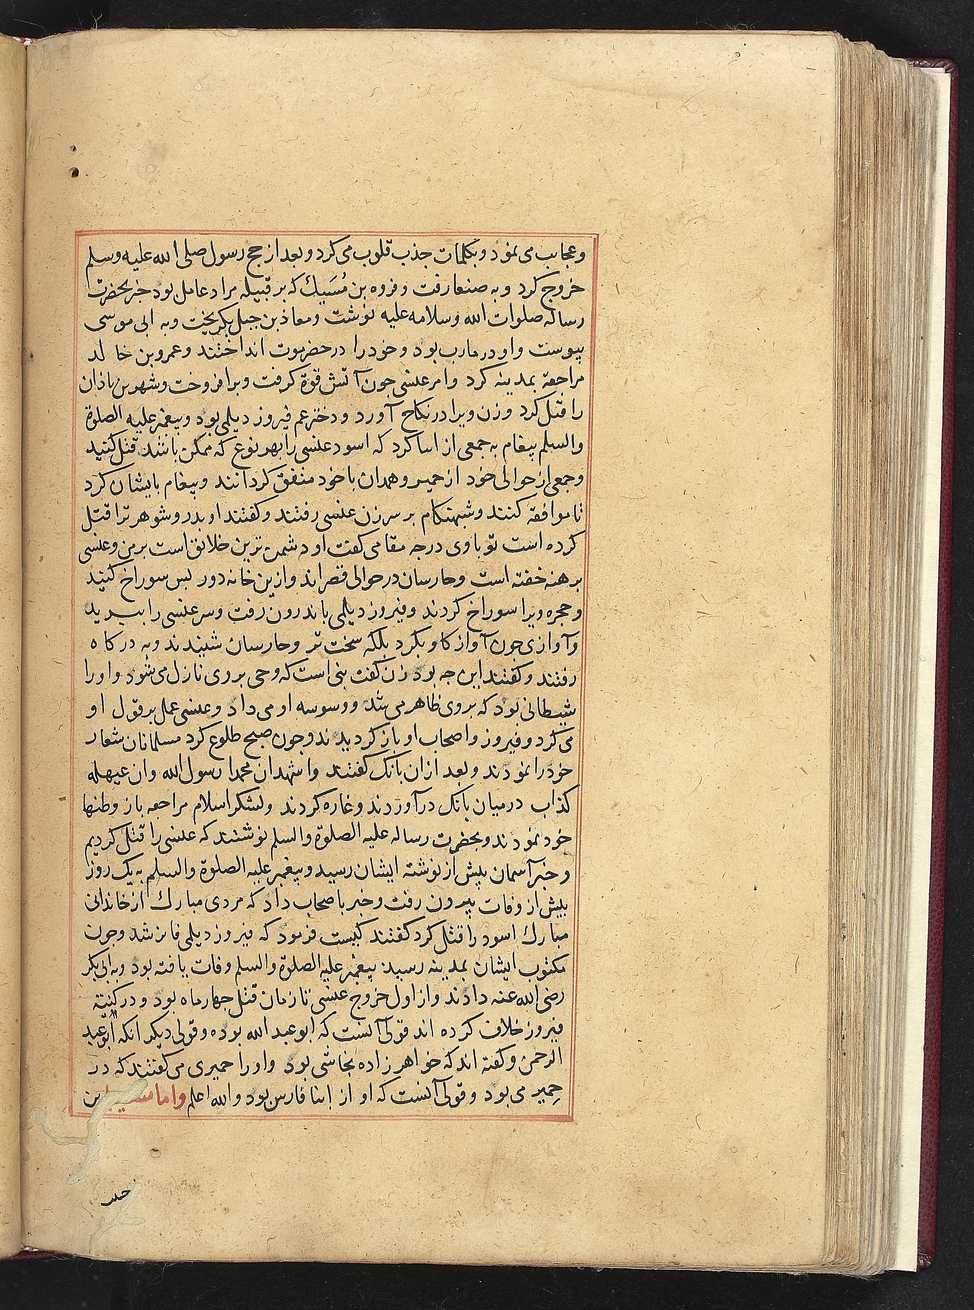 وعجایب می نمود و بکلمات جذب قلوب می کرد و بعد از حج رسول صلی الله علیه وسلم
خروج کرد و به صنعا رفت و فروه بن مُسَیك که بر قبیله مراد عامل بود خبر بحضرت
رساله صلوات الله وسلامه علیه نوشت ومعاذ بن جبل بکریخت وبه ابی موسی
پیوست واو در مارب بود و خود را در حضرموت انداختند وعمرو بن خالد
مراجعة بمدینه کرد وامر عنسی چون آتش قوة کرفت وبرافروخت وشهر بن باذان
را قتل کرد وزن ویرا در نکاح آورد و دختر عم فیروز دیلمی بود وپیغمبر علیه الصلوة
والسلم پیغام به جمعی از ابنا کرد که اسود عنسی را بهر نوع که ممکن باشد قتل کنید
وجمعی از حوالی خود از حمیر وهمدان با خود متفق کردانند وپیغام بایشان کرد
تا موافقه کنند وشبهنکام بر سر زن عنسی رفتند وکفتند او پدر وشوهر ترا قتل
کرده است تو با وی درجه مقامی کفت او دشمن ترین خلائق است بر من وعنسی
برهنه خفته است وحارسان در حوالی قصراند وازین خانه دور پس سوراخ کنید
وحجره ویرا سوراخ کردند وفیروز دیلمی باندرون رفت وسر عنسی را ببرید
وآوازی چون آواز کاو بکرد بلکه سخت تر وحارسان شنیدند وبه درکاه
رفتند وکفتند این چه بود زن کفت نبی است که وحی بروی نازل می شود واورا
شیطانی بود که بروی ظاهر می شد ووسوسه او می داد وعنسی عمل بر قول او
می کرد وفیروز واصحاب او باز کردیدند وچون صبح طلوع کرد مسلمانان شعار
خود را نمودند وبعد ازان بانک کفتند واشهد ان محمدا رسول الله وان عیهله
کذاب درمیان بانک درآوردند وغاره کردند ولشکر اسلام مراجعه باز وطنها
خود نمودند وبحضرت رساله علیه الصلوة والسلم نوشتند که عنسی را قتل کردیم
وخبر آسمان پیش از نوشته ایشان رسید وپیغمبر علیه الصلوة والسلم به یک روز
پیش از وفات بیرون رفت وخبر باصحاب داد که مردی مبارك از خاندانی
مبارك اسود را قتل کرد کفتند کیست فرمود که فیروز دیلمی فایز شد وچون
مکتوب ایشان بمدینه رسید پیغمبر علیه الصلوة والسلم وفات یافته بود وبه ابی بکر
رضی الله عنه دادند واز اول خروج عنسی تا زمان قتل چهار ماه بود ودر کنیة
فیروز خلاف کرده اند قولی آنست که ابو عبد الله بوده وقولی دیکر آنکه ابو عبد
الرحمن وکفته اند که خواهر زاده نجاشی بود واورا حمیری می کفتند که در
حِمیر می بود وقولی آنست که او از ابنا فارس بود والله اعلم واما بن